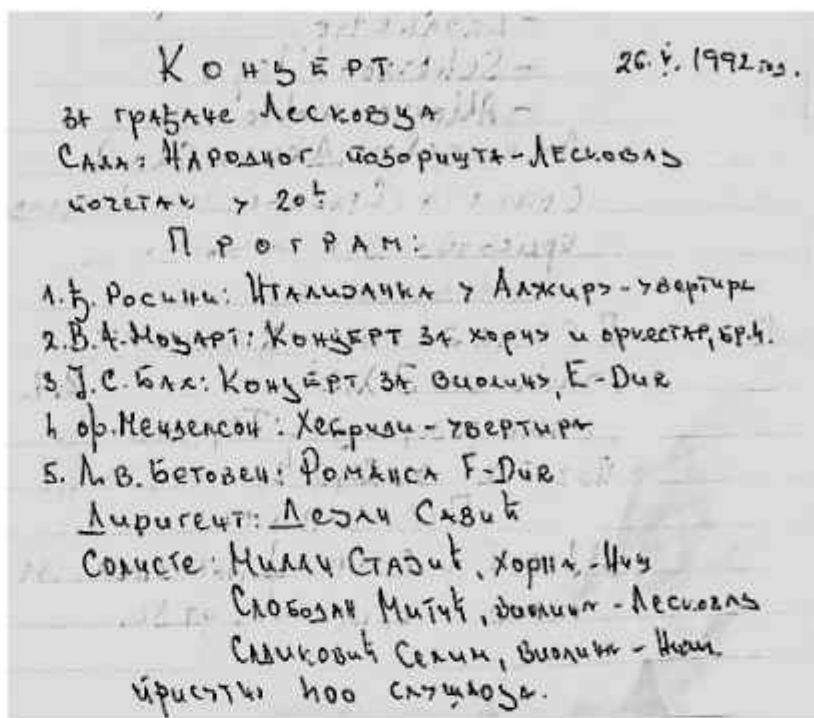 Концерт:
26. V. 1992 год.
за грађане Лесковца
Сала: Народног позоришта - Лесковац
почетак у 20ʰ
Програм:
1. Ђ. Росини: Италијанка у Алжиру - увертира
2. В. А. Моцарт: Концерт за хорну и оркестар, бр. 4.
3. Ј. С. Бах: Концерт за виолину, E-Dur
4 Ф. Менделсон: Хебриди - увертира
5. Л. В. Бетовен: Романса F-Dur
Диригент: Дејан Савић
Солисте: Милан Стазић, хорна - Ниш
Слободан Митић, виолина - Лесковац
Садиковић Селин, виолина - Ниш
присутно 400 слушалаца.